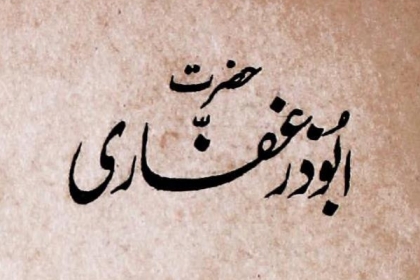 حضرت
ابُوذرّ غفاری